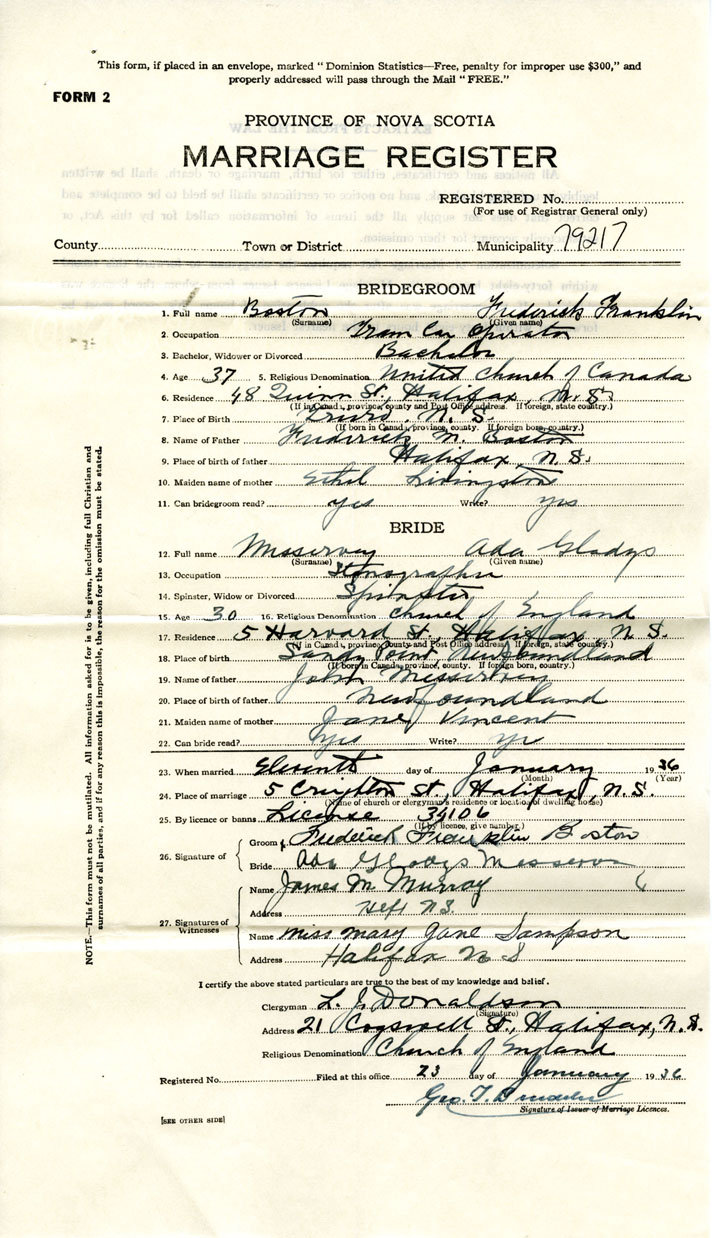 This form, if placed in an envelope, marked "Dominion Statistics—Free, penalty for improper use $300," and
properly addressed will pass through the Mail "FREE."
FORM 2
PROVINCE OF NOVA SCOTIA
MARRIAGE REGISTER
REGISTERED No.
(For use of Registrar General only)
County Town or District Municipality 79217
BRIDEGROOM
1. Full name Boston Frederick Franklin
(Surname) (Given name)
2. Occupation Tram Car Operator
3. Bachelor, Widower or Divorced Bachelor
4. Age 37 5. Religious Denomination United Church of Canada
6. Residence 48 Quinn St., Halifax, N. S.
(If in Canada, province, county and Post Office address. If foreign, state country.)
7. Place of Birth Truro. N. S.
(If born in Canada, province, county. If foreign born, country.)
8. Name of Father Frederick M. Boston
9. Place of birth of father Halifax, N. S.
10. Maiden name of mother Ethel Livingston
11. Can bridegroom read? yes Write? yes
BRIDE
12. Full name Messervey Ada Gladys
(Surname) (Given name)
13. Occupation Stenographer
14. Spinster, Widow or Divorced Spinster
15. Age 30 16. Religious Denomination Church of England
17. Residence 5 Harvard St., Halifax, N. S.
(If in Canada, province, county and Post Office address. If foreign, state country.)
18. Place of birth Sandy Point, Newfoundland
(If born in Canada, province, county. If foreign born, country.)
19. Name of father John Messervey
20. Place of birth of father Newfoundland
21. Maiden name of mother Jane Vincent
22. Can bride read? Yes Write? yes
23. When married Eleventh day of January 1936
(Month) (Year)
24. Place of marriage 5 Creighton St., Halifax, N. S.
(Name of church or clergyman's residence or location of dwelling house)
25. By licence or banns License 34106
(If by licence, give number)
26. Signature of
Groom Frederick Franklin Boston
Bride Ada Gladys Messervey
27. Signatures of Witnesses
Name James M. Murray
Address Hfx N.S.
Name Miss Mary Jane Sampson
Address Halifax N S
I certify the above stated particulars are true to the best of my knowledge and belief.
Clergyman L. J. Donaldson
(Signature)
Address 21 Cogswell St., Halifax, N. S.
Religious Denomination Church of England
Registered No. Filed at this office 23 day of January 1936
Geo. T.
Signature of Issuer of Marriage Licences.
[SEE OTHER SIDE]
NOTE.—This form must not be mutilated. All information asked for is to be given, including full Christian and
surnames of all parties, and if for any reason this is impossible, the reason for the omission must be stated.